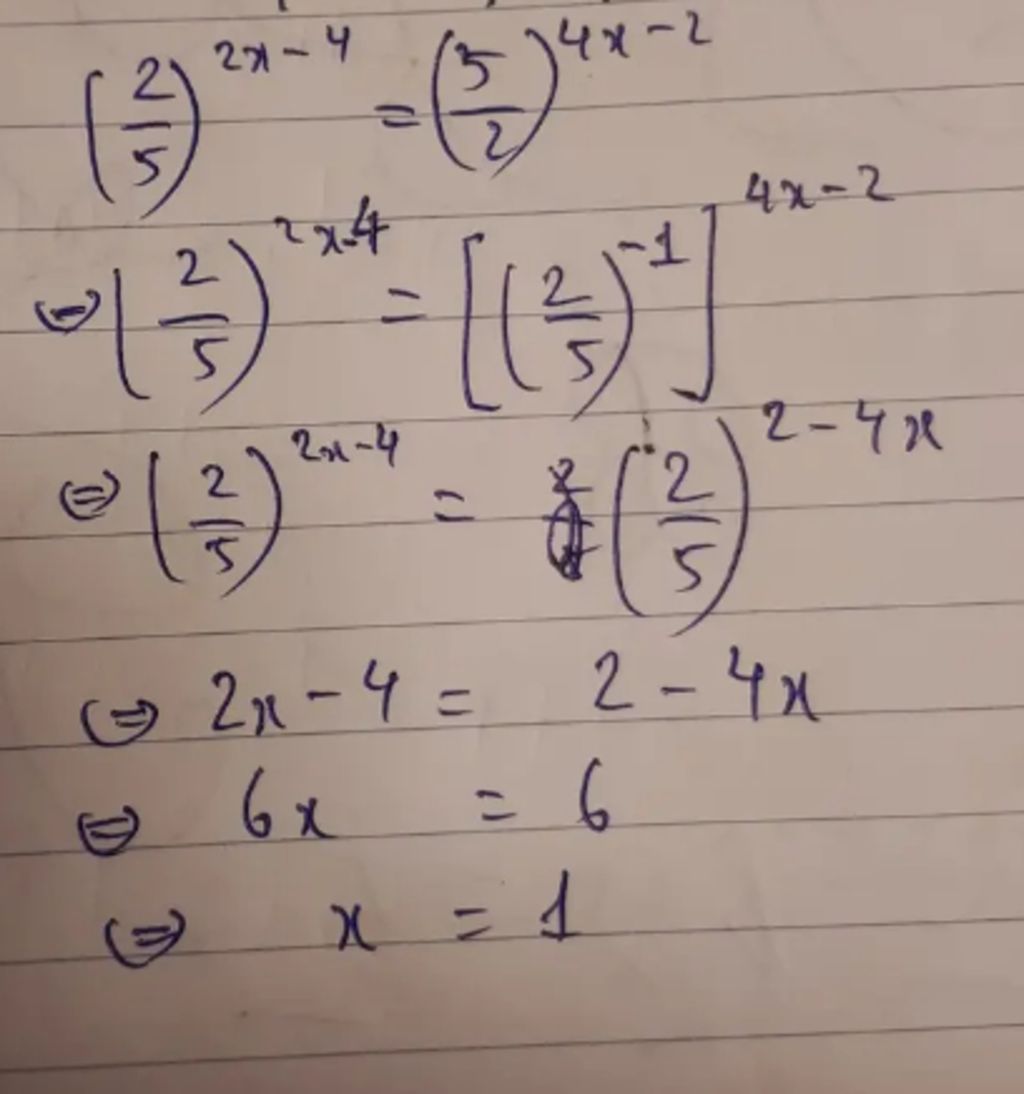 (2/5)^(2x-4) = (5/2)^(4x-2)
⇔ (2/5)^(2x-4) = [(2/5)^(-1)]^(4x-2)
⇔ (2/5)^(2x-4) = (2/5)^(2-4x)
⇔ 2x-4 = 2-4x
⇔ 6x = 6
⇔ x = 1